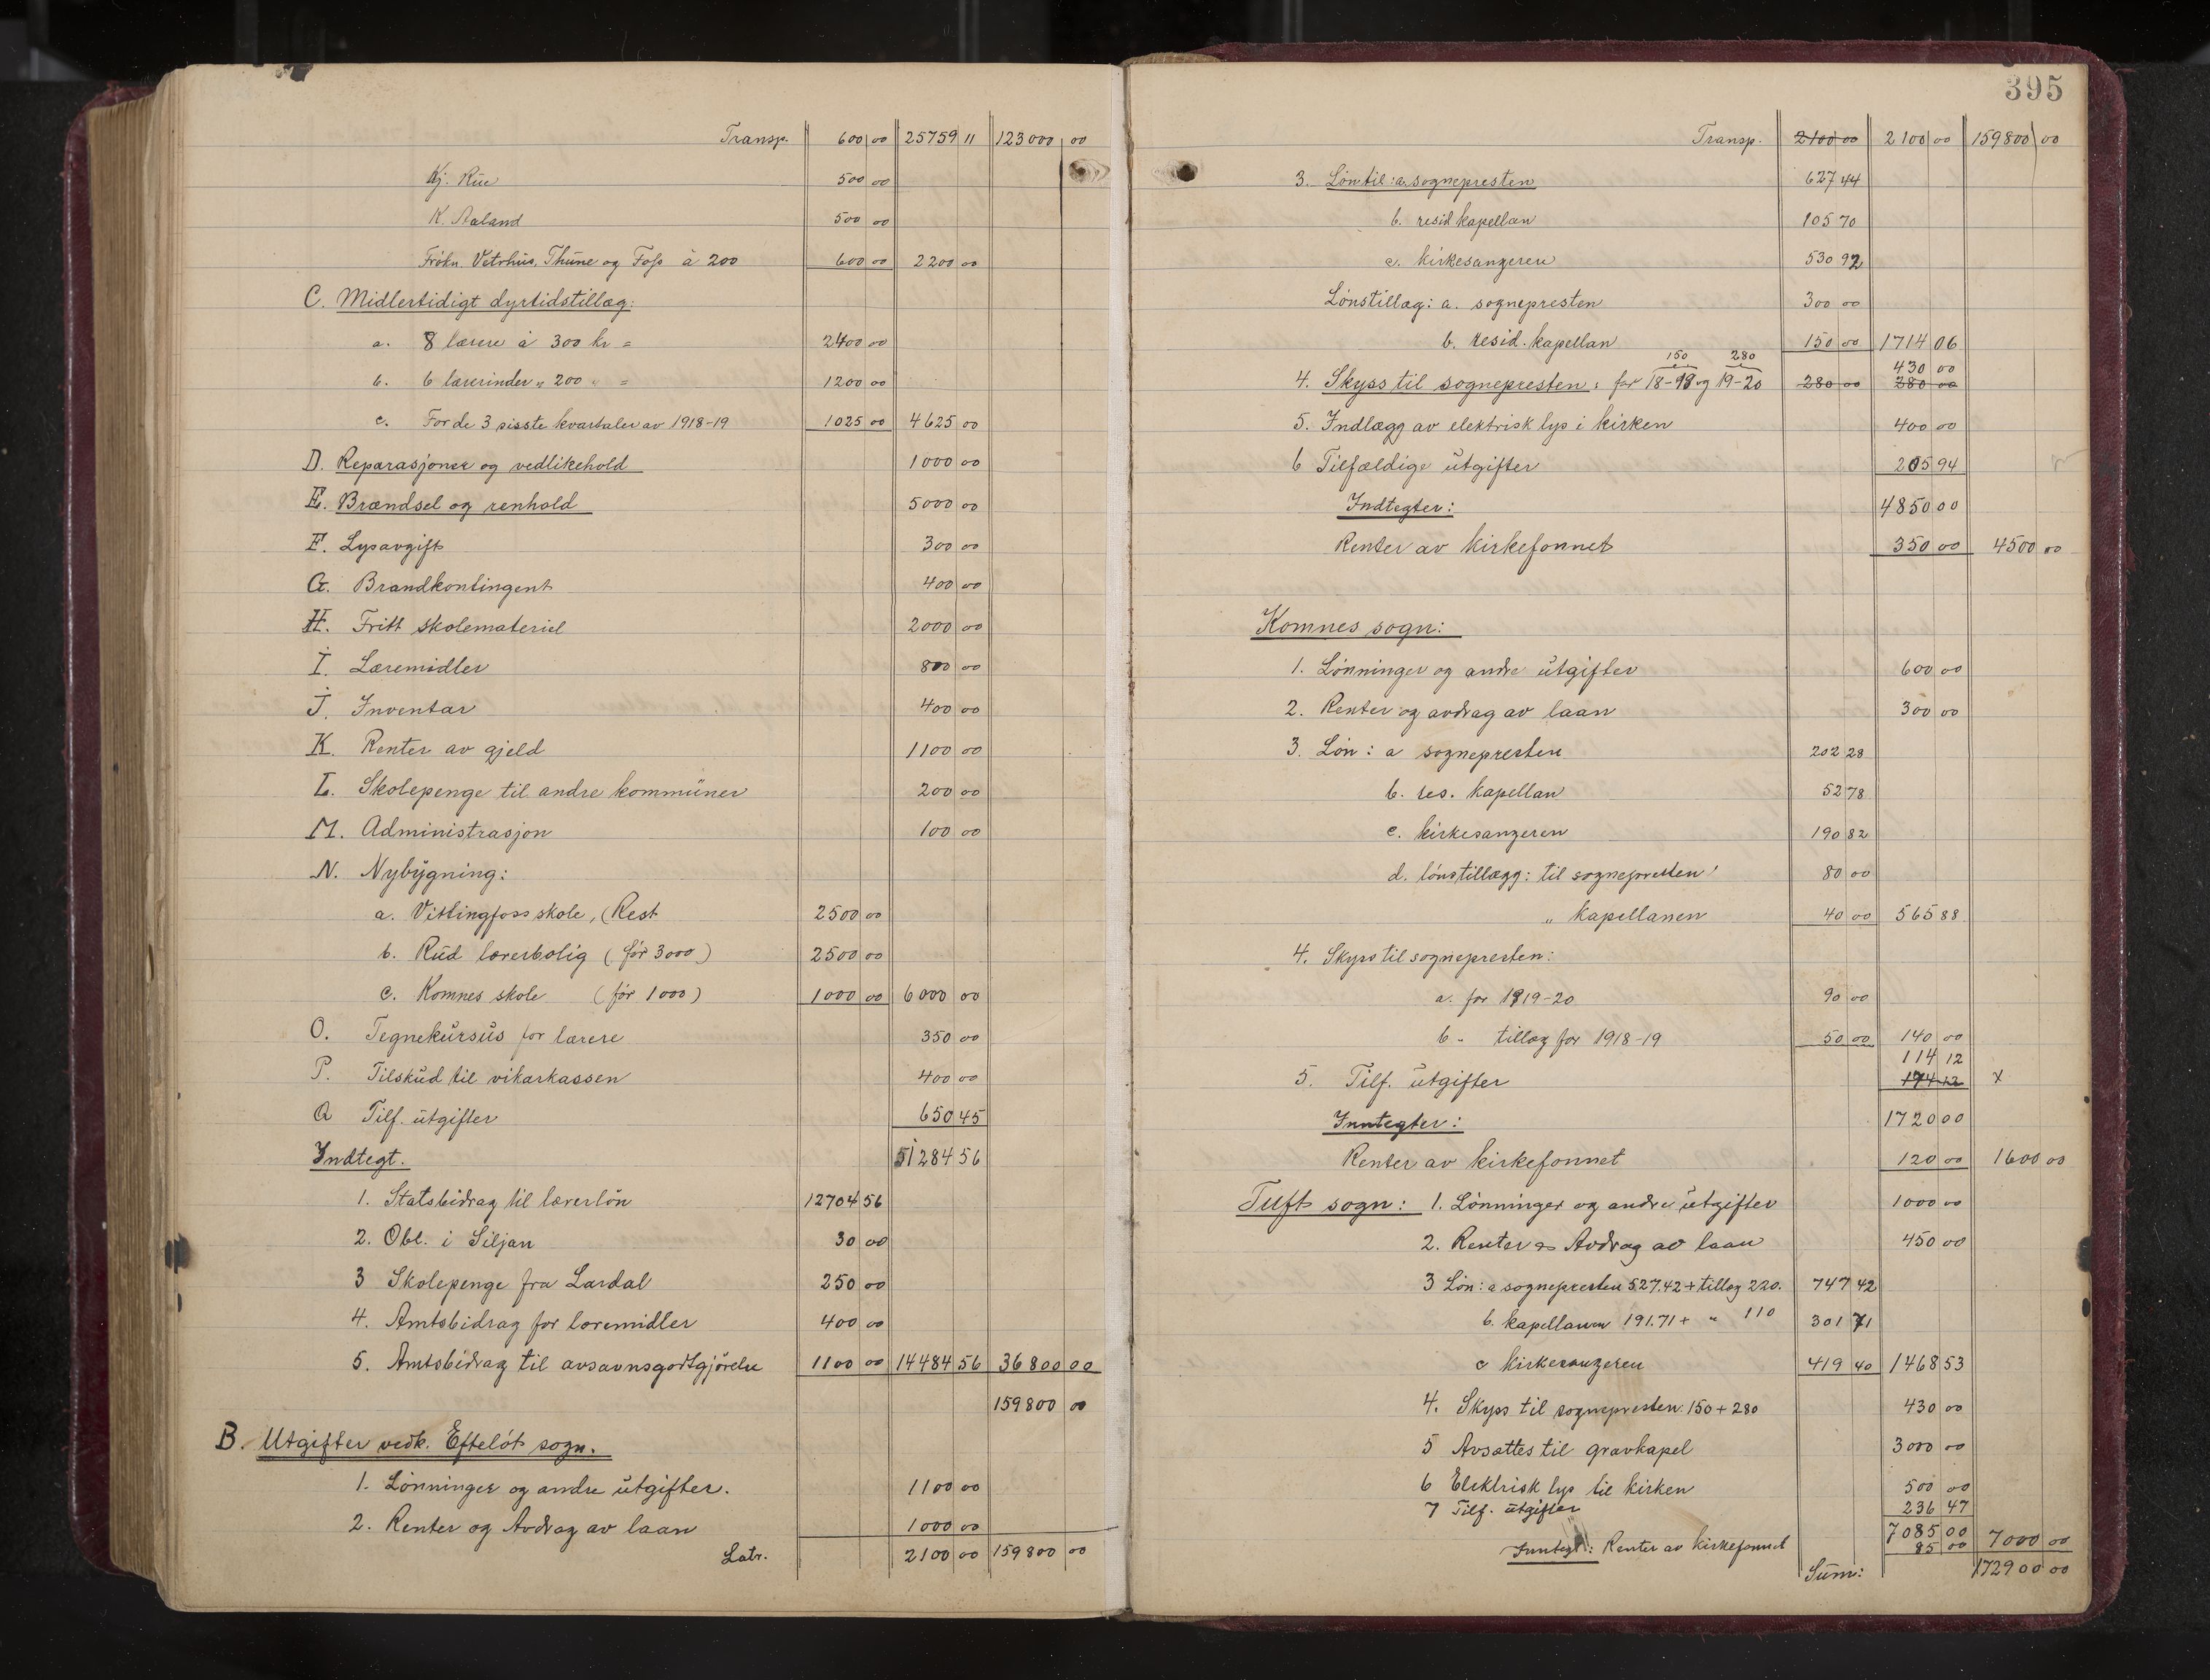 Transp. 600 00 25759 11 123000 00
Kj. Rue 500 00
K. Aaland 500 00
Frøkn. Vetrhus, Thune og Foss à 200 600 00 2200 00
C. Midlertidigt dyrtidstillæg:
a. 8 lærere à 300 kr = 2400 00
b. 6 lærerinder „ 200 „ = 1200 00
c. For de 3 sisste kvartaler av 1918-19 1025 00 4625 00
D. Reparasjoner og vedlikehold 1000 00
E. Brændsel og renhold 5000 00
F. Lysavgift 300 00
G. Brandkontingent 400 00
H. Fritt skolemateriel 2000 00
I. Læremidler 800 00
J. Inventar 400 00
K. Renter av gjeld 1100 00
L. Skolepenge til andre kommuner 200 00
M. Administrasjon 100 00
N. Nybygning:
a. Vittingfoss skole, (Rest 2500 00
b. Rud lærerbolig (før 3000) 2500 00
c. Komnes skole (før 1000) 1000 00 6000 00
O. Tegnekursus for lærere 350 00
P. Tilskud til vikarkassen 400 00
Q Tilf. utgifter 650 45
Indtegt. 51284 56
1. Statsbidrag til lærerløn 12704 56
2. Obl. i Siljan 30 00
3 Skolepenge fra Lardal 250 00
4. Amtsbidrag for læremidler 400 00
5. Amtsbidrag til avsavnsgodtgjørelse 1100 00 14484 56 36800 00
159800 00
B. Utgifter vedk. Efteløt sogn.
1. Lønninger og andre utgifter. 1100 00
2. Renter og Avdrag av laan 1000 00
Latr. 2100 00 159800 00
395
Transp. 2100 00 2100 00 159800 00
3. Løn til: a. sognepresten 627 44
b. resid kapellan 105 70
c. kirkesangeren 530 92
Lønstillæg: a. sognepresten 300 00
b. resid. kapellan 150 00 1714 06
150 280 430 00
4. Skyss til sognepresten: for 18-19 og 19-20 280 00 280 00
5. Indlægg av elektrisk lys i kirken 400 00
6 Tilfældige utgifter 205 94
Indtegter: 4850 00
Renter av kirkefonnet 350 00 4500 00
Komnes sogn:
1. Lønninger og andre utgifter 600 00
2. Renter og avdrag av laan 300 00
3. Løn: a sognepresten 202 28
b. res. kapellan 52 78
c. kirkesangeren 190 82
d. lønstillægg: til sognepresten 80 00
„ kapellanen 40 00 565 88
4. Skyss til sognepresten:
a. for 1919-20 90 00
b - tillæg for 1918-19 50 00 140 00
114 12
5. Tilf. utgifter 174 12 x
Inntegter: 1720 00
Renter av kirkefonnet 120 00 1600 00
Tuft sogn: 1. Lønninger og andre utgifter 1000 00
2. Renter og Avdrag av laan 450 00
3 Løn: a sognepresten 527.42 + tillæg 220. 747 42
b. kapellanen 191.71 + „ 110 301 71
c kirkesangeren 419 40 1468 53
4. Skyss til sognepresten: 150 + 280 430 00
5 Avsættes til gravkapel 3000 00
6 Elektrisk lys til kirken 500 00
7 Tilf. utgifter 236 47
7085 00
Inntegt: Renter av kirkefonnet 85 00 7000 00
Sum: 172900 00